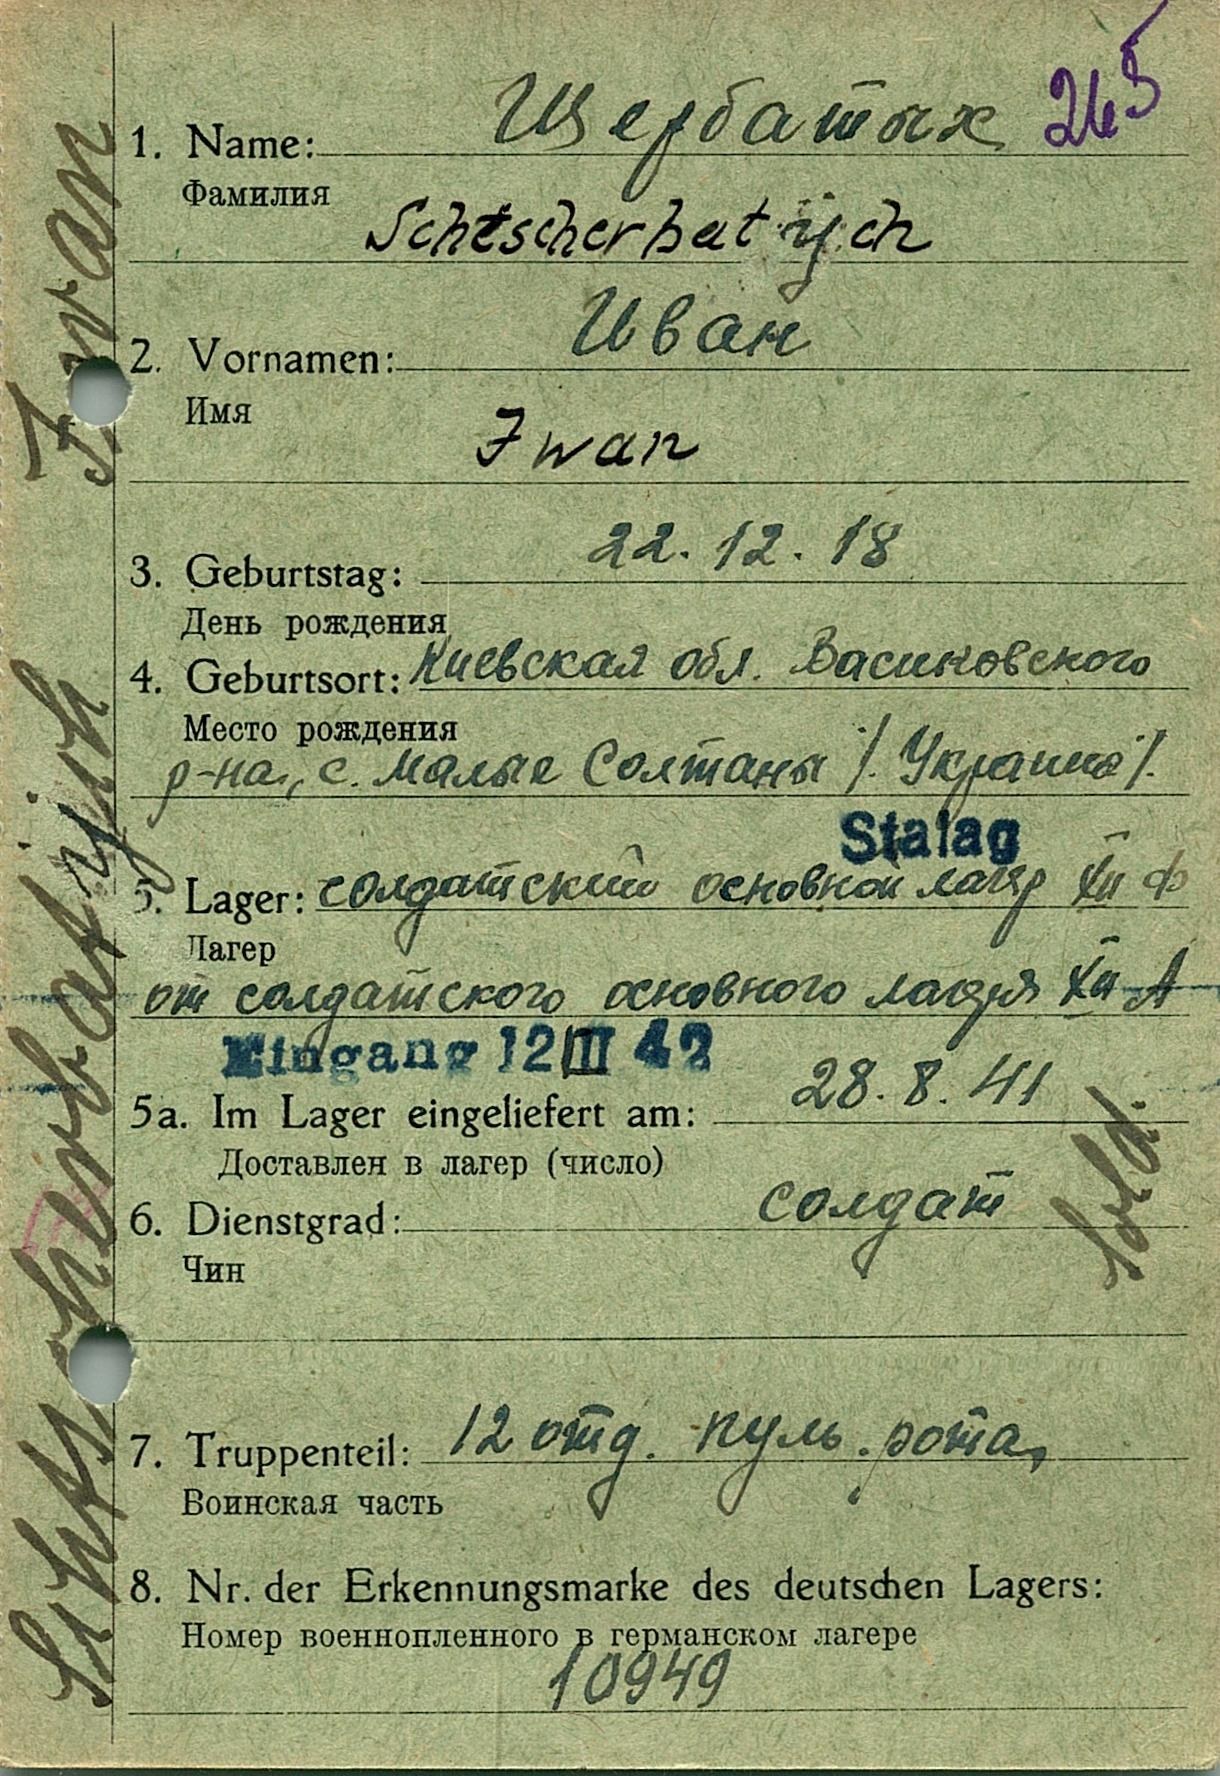 Щербатых 265
1. Name:
Фамилия
Schtscherbatijch
Иван
2. Vornamen:
Имя
Iwan
22.12.18
3. Geburtstag:
День рождения
4. Geburtsort: Киевская обл. Васиковского
Место рождения
р-на, с. Малые Солтаны /. Украина /.
Stalag
5. Lager: солдатский основной лагер XII Ф
Лагер
от солдатского основного лагеря XII А
Eingang 12 III 42
5a. Im Lager eingeliefert am: 28.8.41
Доставлен в лагер (число)
6. Dienstgrad: солдат
Sold.
Чин
7. Truppenteil: 12 отд. пуль. рота,
Воинская часть
8. Nr. der Erkennungsmarke des deutschen Lagers:
Номер военнопленного в германском лагере
10949
Schtscherbatijch Iwan